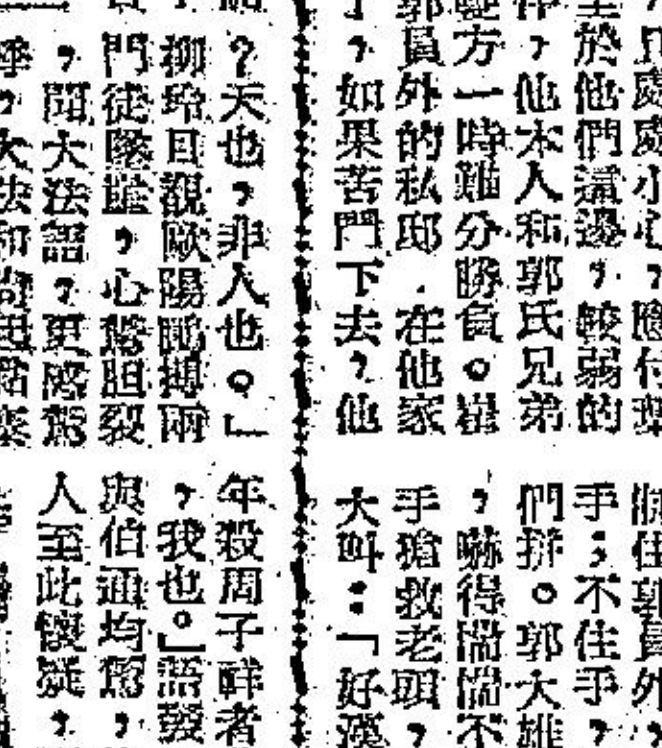 ，處處小心，應付
至於他們這邊，較弱的
，他本人和郭氏兄弟
雙方一時難分勝負。
郭員外的私邸．在他家
，如果苦鬥下去，他
住郭員外，
手；不住手，
們拚。郭大雄
，嚇得
手搶救老頭，
大叫：「好漢
？天也，非人也。」
柳玲目觀歐陽鵬搏兩
門徒墜崖，心驚胆裂
，開大法語，更感驚
，大法和尚
年殺周子祥者
，我也。」語發
與伯通均驚，
人至此懷疑，